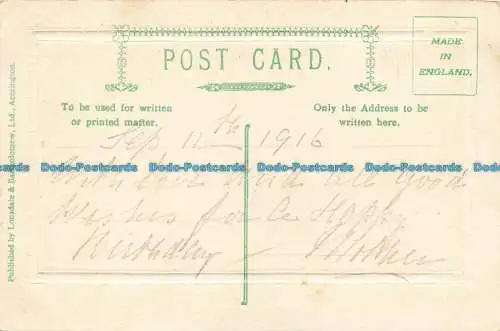 POST CARD.
MADE
IN
ENGLAND.
To be used for written
or printed matter.
Only the Address to be
written here.
Published by Lonsdale & Bartholomew, Ltd., Accrington.
Sep 11th 1916
Dodo-Postcards Dodo-Postcards Dodo-Postcards Dodo-Postcards
With love and all Good
Wishes for a Happy
Birthday
Dodo-Postcards Dodo-Postcards Dodo-Postcards Dodo-Postcards